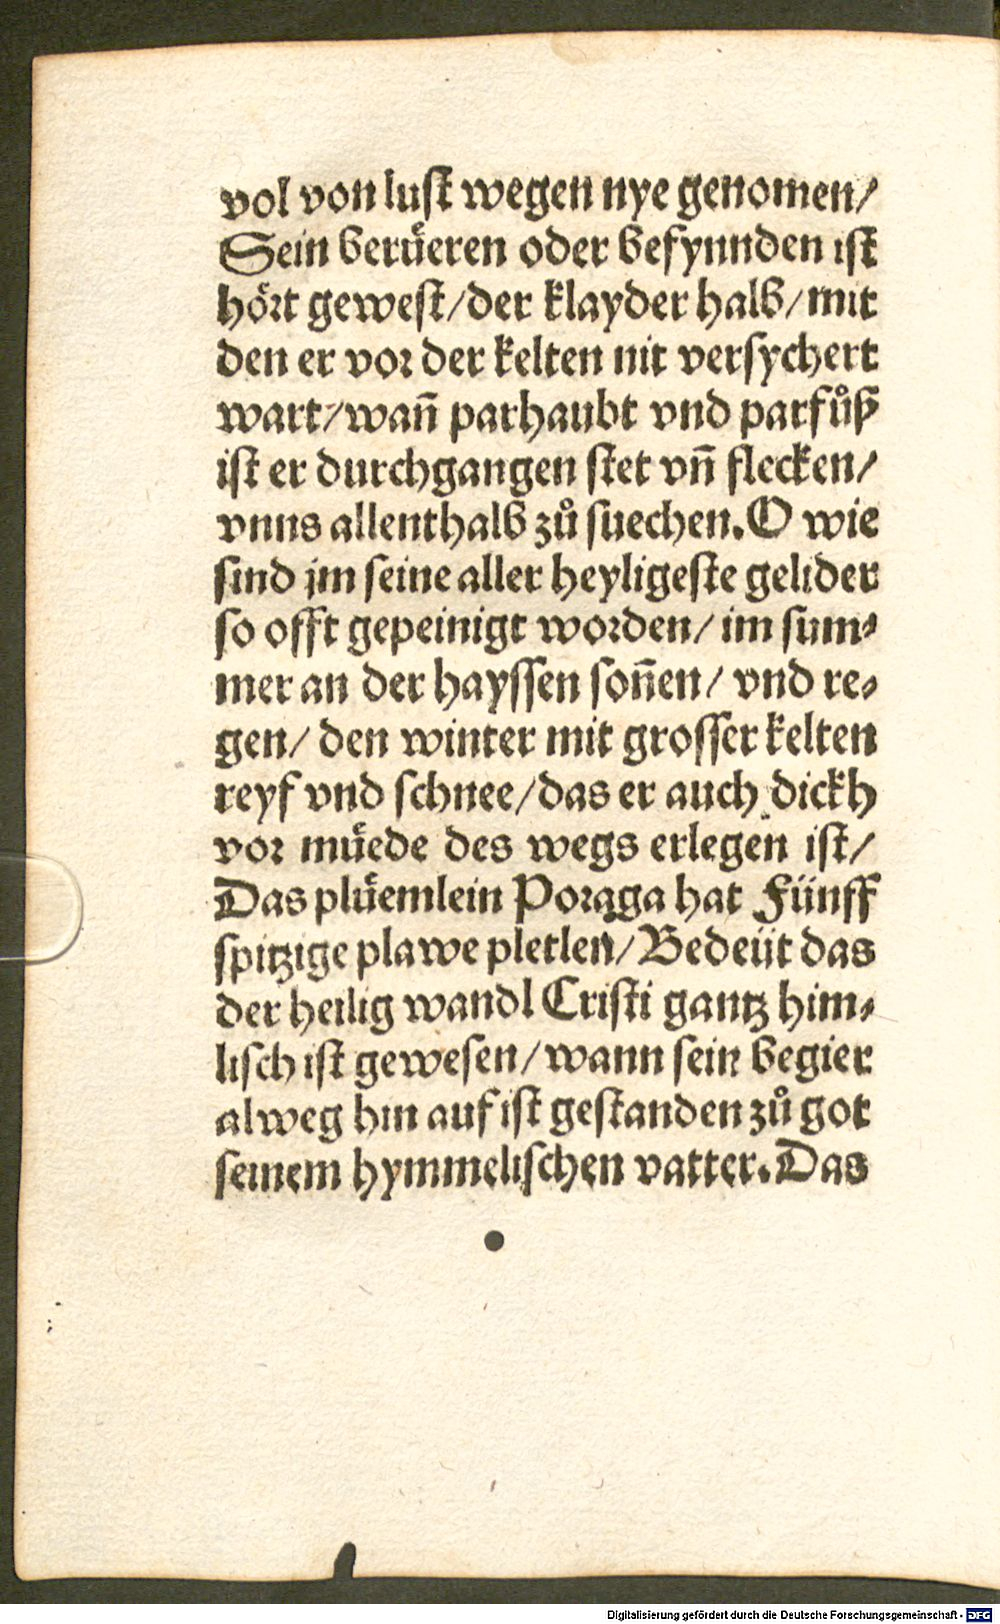 vol von lust wegen nye genomen/
Sein berüeren oder befynnden ist
hört gewest/der klayder halb/mit
den er vor der kelten nit versychert
wart/wañ parhaubt vnd parfůß
ist er durchgangen stet vñ flecken/
vnns allenthalb zů suechen. O wie
sind jm seine aller heyligeste gelider
so offt gepeinigt worden/ im sum⸗
mer an der hayssen soñen/ vnd re⸗
gen/ den winter mit grosser kelten
reyf vnd schnee/das er auch dickh
vor müede des wegs erlegen ist/
Das plüemlein Poraga hat Fünff
spitzige plawe pletlen/Bedeüt das
der heilig wandl Cristi gantz him⸗
lisch ist gewesen/wann sein begier
alweg hin auf ist gestanden zů got
seinem hymmelischen vatter. Das
Digitalisierung gefördert durch die Deutsche Forschungsgemeinschaft - DFG